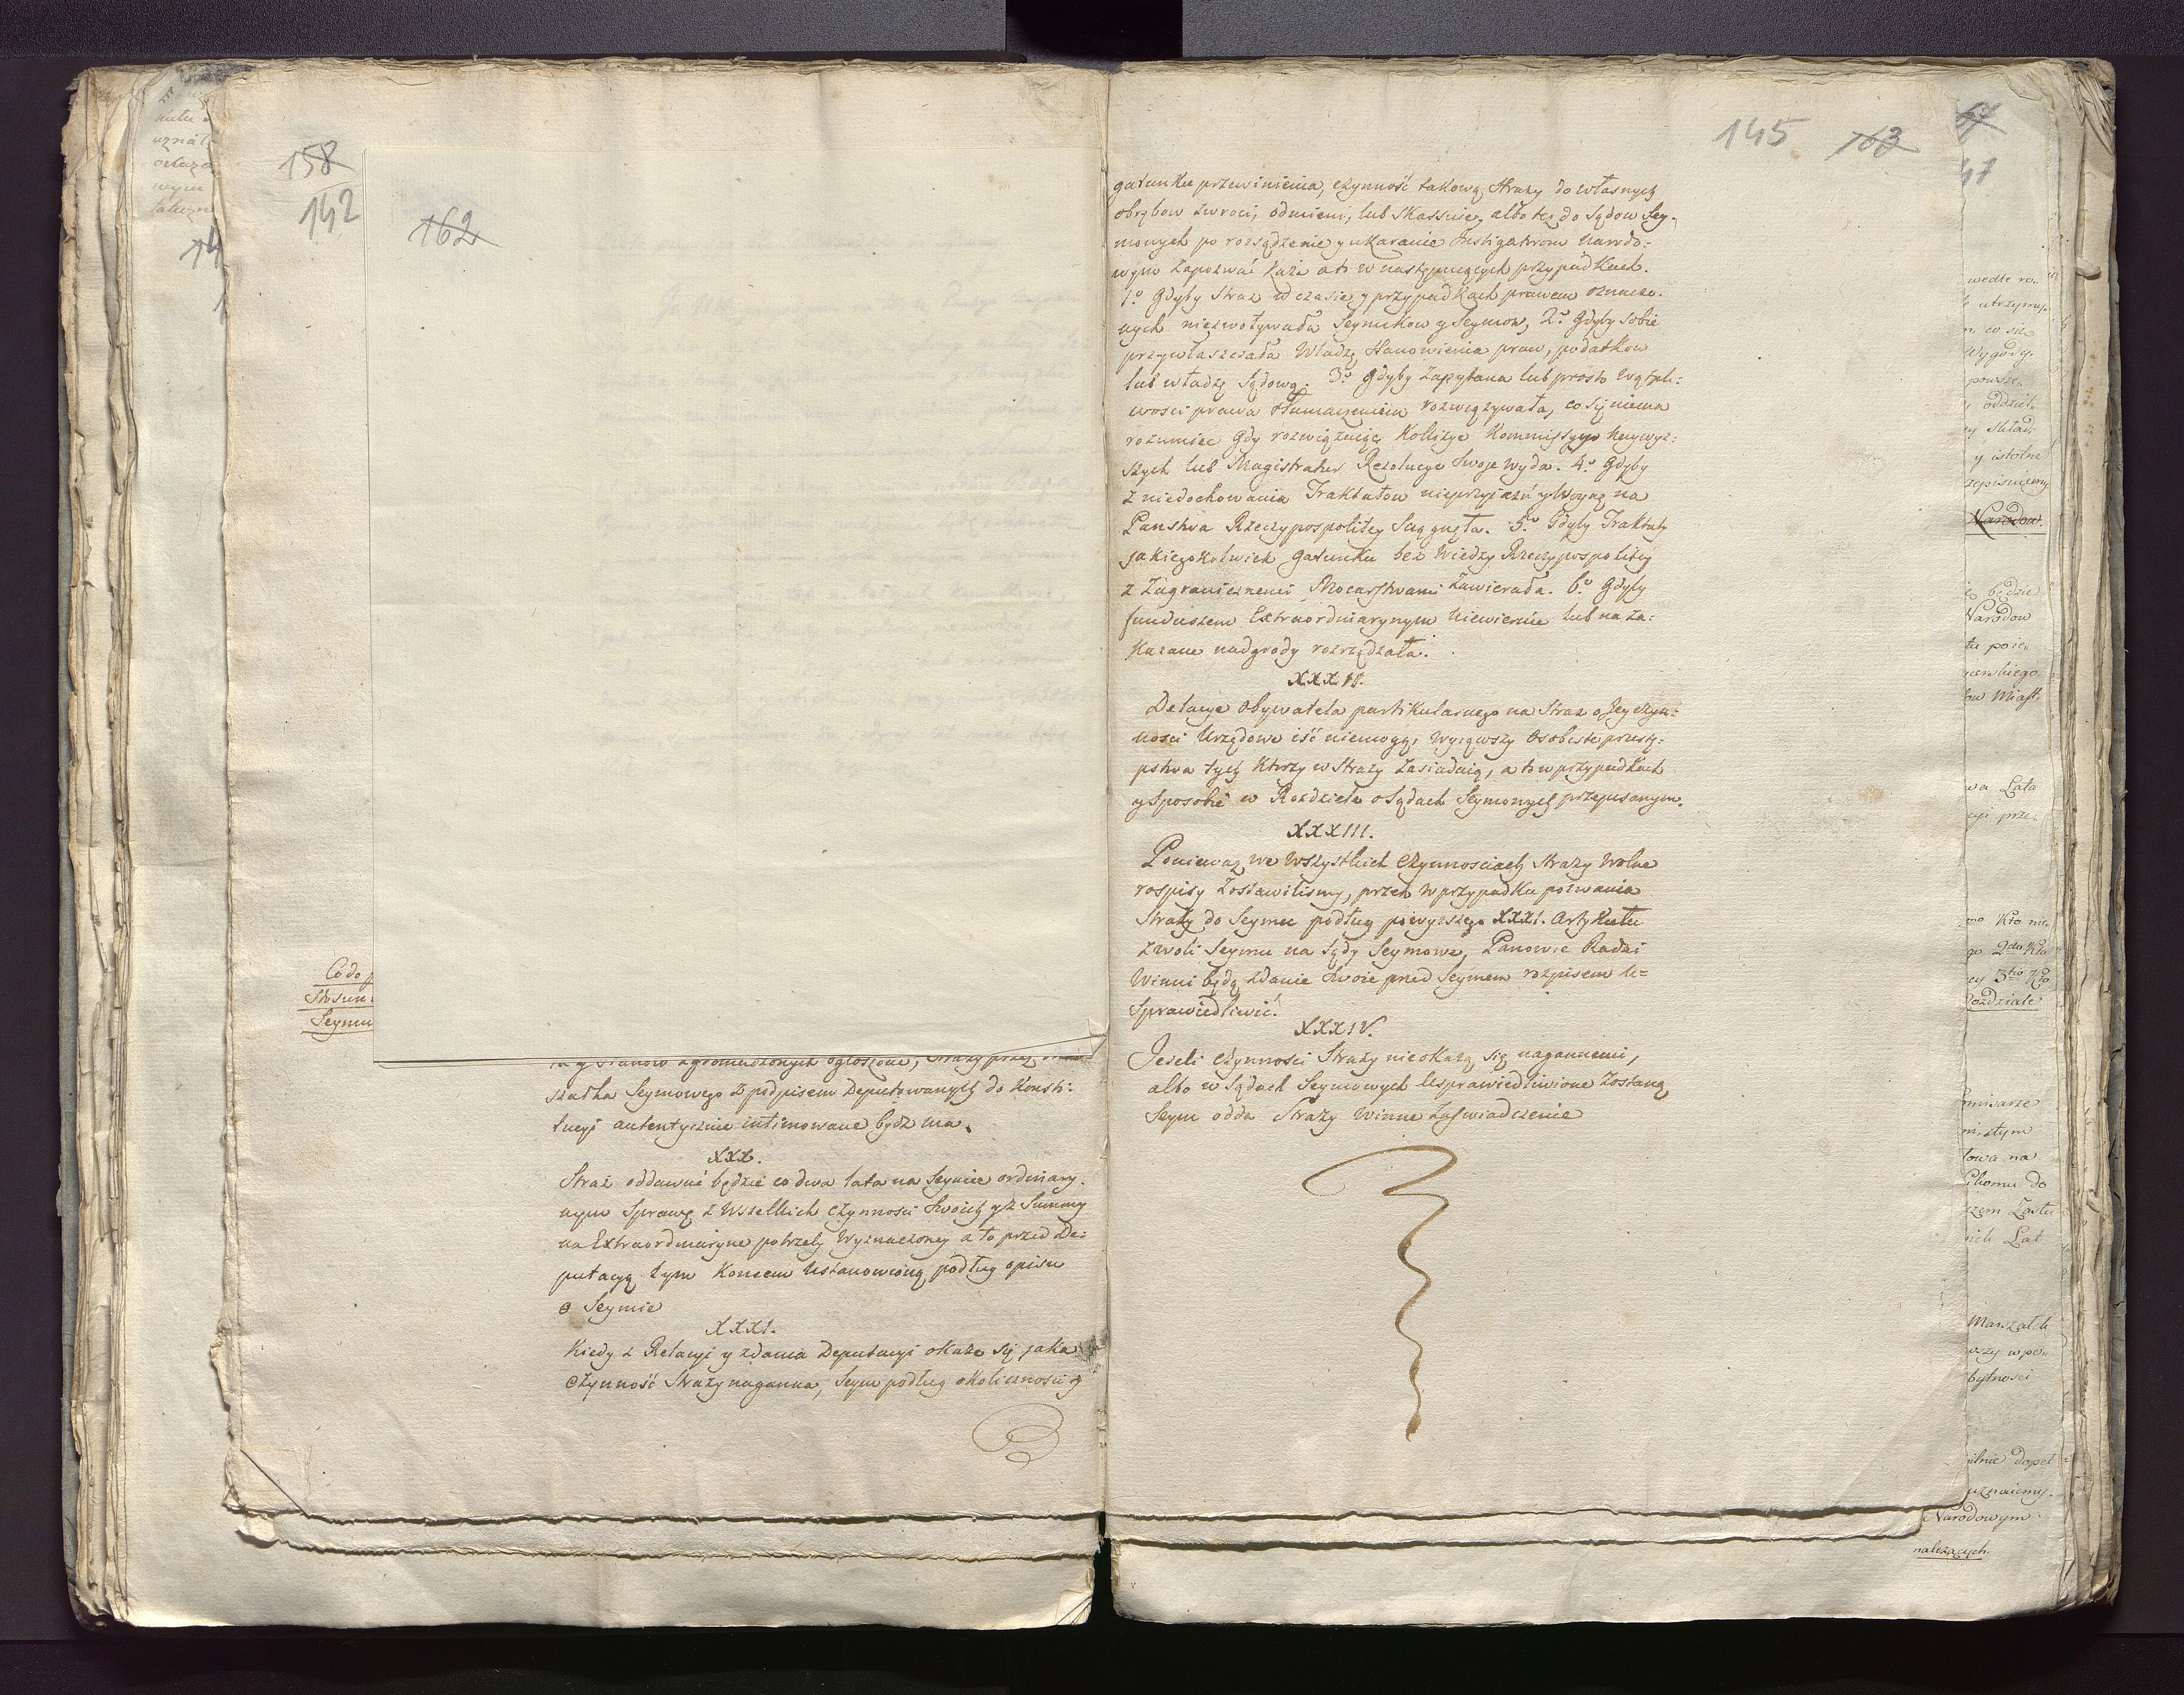 158
142
162
Co do
Stosun
Seymu
zgromadzonych ogłoszone, Straży przez
szałka Seymowego z podpisem Deputowanych do Konsti:
tucyi autentycznie intimowane bydź ma.
XXX.
Straż oddawać będzie co dwa lata na Seymie ordynary:
nym Sprawę z Wszelkich czynności Swoich y z Summy
na Extraordynaryne potrzeby Wyznaczoney a to przed De:
putacyą tym Koncem Ustanowioną podług opisu
o Seymie
XXXI.
Kiedy z Relacyi y zdania Deputacyi okaże się jaka
czynność Straży naganna, Seym podług okoliczności y
145 163
gatunku przewinienia, czynność takową Straży do własnych
obrębow zwroci, odmieni, lub skassuie, albo też do Sądow Sey:
mowych po rozsądzenie y ukaranie Instigatorom Narodo:
wym zapozwać każe a to w następuiących przypadkach.
1º Gdyby Straż w czasie y przypadkach prawem oznaczo:
nych niezwoływała Seymikow y Seymow, 2º Gdyby sobie
przywłaszczała Władzę stanowienia praw, podatkow
lub władzę Sądową. 3º Gdyby zapytana lub prosto wątpli:
wosci prawa tłumaczeniem rozwiązywała, co się niema
rozumiec gdy rozwiązuiąc Kollizye Kommissyow naywyż:
szych lub Magistratur Rezolucye swoje wyda. 4º Gdyby
z niedochowania Traktatow nieprzyiaźń y Woynę na
Panstwa Rzeczypospolitey Sciągnęła. 5º Gdyby Traktaty
jakiegożkolwiek gatunku bez Wiedzy Rzeczypospolitey
z Zagranicznemi Mocarstwami zawierała. 6º Gdyby
funduszem Extraordynarynym niewiernie lub na za:
kazane nadgrody rozrządzała.
XXXII.
Delacye Obywatela partikularnego na Straż o Jey czyn:
nosci Urzędowe iść niemogą, wyiąwszy Osobiste przestę:
pstwa tych Ktorzy w Straży zasiadaią, a to w przypadkach
y sposobie w Rozdziele o Sądach Seymowych przepisanym.
XXXIII.
Ponieważ we Wszystkich czynnosciach Straży Wolne
rospisy zostawilismy, przeto w przypadku pozwania
Straży do Seymu podług powyższego XXXI. Artykułu
z woli Seymu na Sądy Seymowe, Panowie Radni
Winni będą zdanie Swoie przed Seymem rozpisem u=
sprawiedliwić.
XXXIV.
Jeżeli czynności Straży nieokażą się nagannemi,
albo w Sądach Seymowych usprawiedliwione Zostaną
Seym odda Straży Winne Zaswiadczenie
wedle
utrzymy
co się
Wygody
oddziel
y istotne
Narodow.
będzie
Narodow
Miast
Lata
Kto nie
2do Kto
3tio Kto
Rozdziale
na
do
Lat
Marszałk
bytności
dopeł
uznaiemy.
Narodowym
należących.